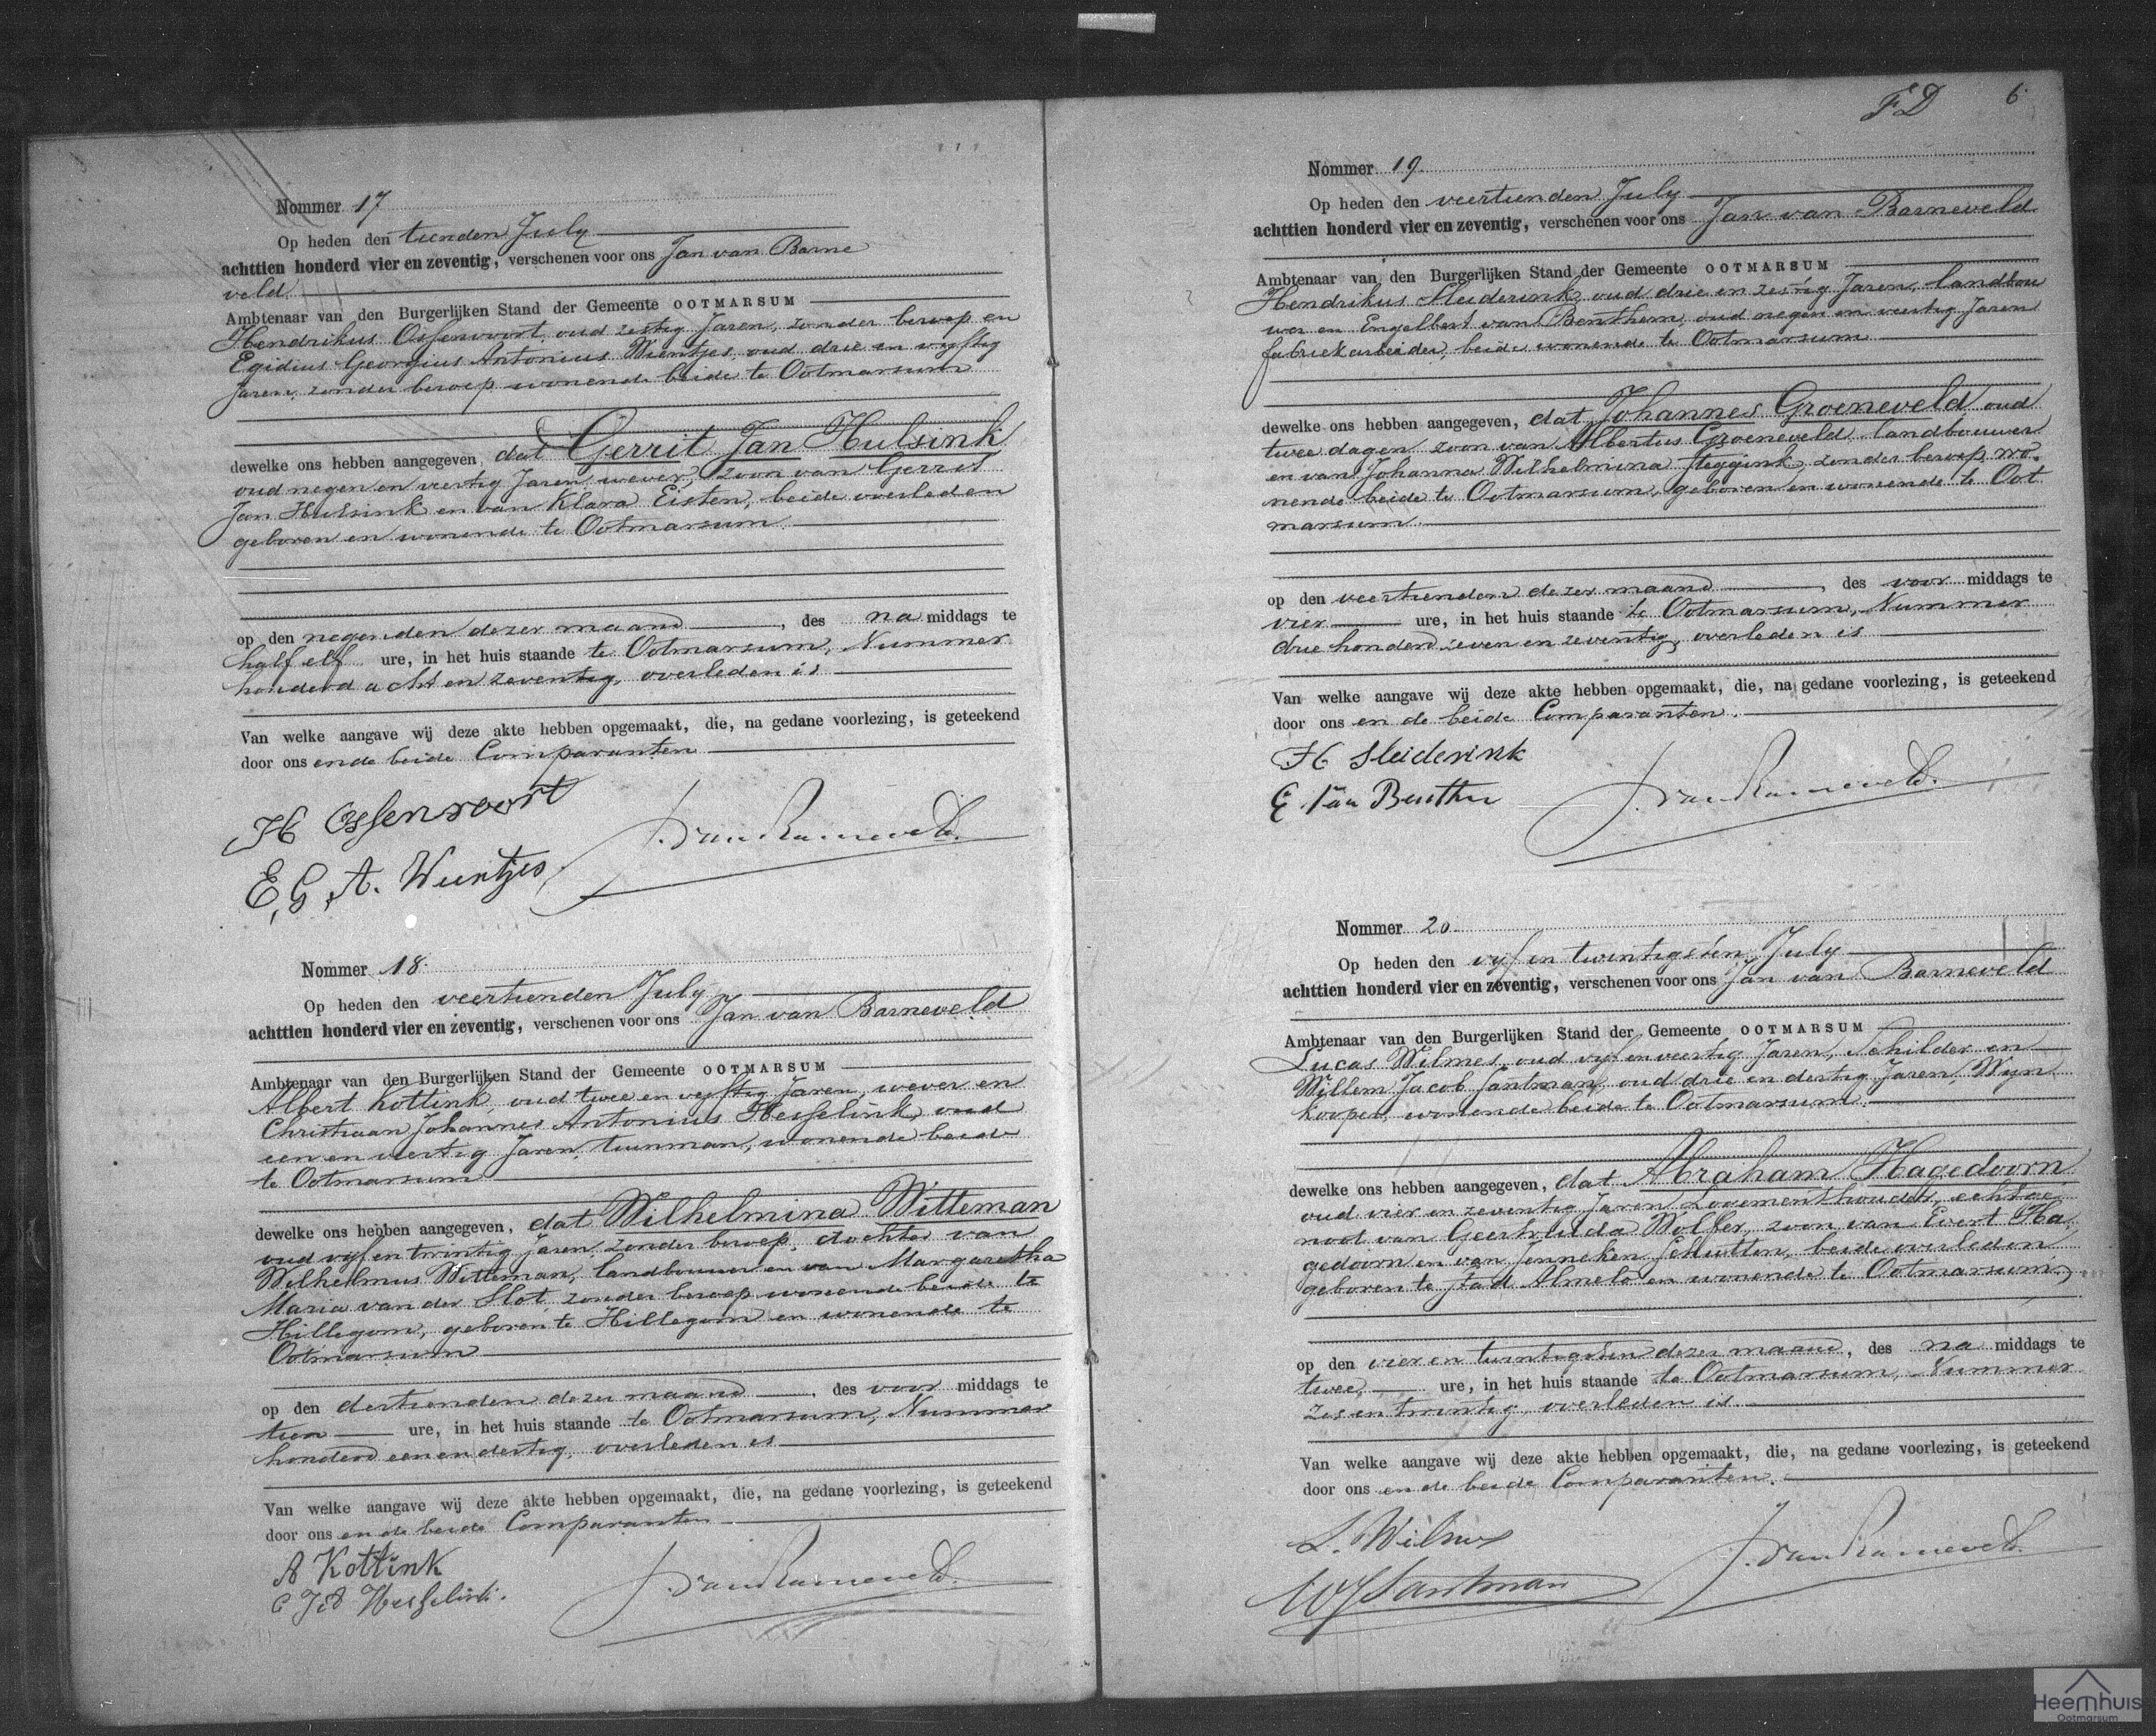 Nommer 17
Op heden den tienden July
achttien honderd vier en zeventig, verschenen voor ons Jan van Barne
veld
Ambtenaar van den Burgerlijken Stand der Gemeente OOTMARSUM
Hendrikus Ossenvoort, oud zestig Jaren, zonder beroep en
Egidius Georgius Antonius Wientjes, oud drie en vyftig
Jaren, zonder beroep wonende beide te Ootmarsum
dewelke ons hebben aangegeven, dat Gerrit Jan Hulsink
oud negen en veertig Jaren, wever, zoon van Gerrit
Jan Hulsink en van Klara Eisten, beide overleden
geboren en wonende te Ootmarsum
op den negenden dezer maand, des na middags te
half elf ure, in het huis staande te Ootmarsum, Nummer
honderd acht en zeventig, overleden is
Van welke aangave wij deze akte hebben opgemaakt, die, na gedane voorlezing, is geteekend
door ons en de beide Comparanten
H Ossenvoort
J. van Barneveld.
E. G. A. Wientjes
Nommer 18.
Op heden den veertienden July
achttien honderd vier en zeventig, verschenen voor ons Jan van Barneveld
Ambtenaar van den Burgerlijken Stand der Gemeente OOTMARSUM
Albert Kottink, oud twee en vyftig Jaren, wever en
Christiaan Johannes Antonius Hesselink, oud
een en veertig Jaren, tuinman, wonende beide
te Ootmarsum
dewelke ons hebben aangegeven, dat Wilhelmina Witteman
oud vyf en twintig Jaren, zonder beroep, dochter van
Wilhelmus Witteman, landbouwer en van Margaretha
Maria van der Slot, zonder beroep wonende beide te
Hillegom, geboren te Hillegom en wonende te
Ootmarsum
op den dertienden dezer maand, des voor middags te
tien ure, in het huis staande te Ootmarsum, Nummer
honderd een en dertig, overleden is
Van welke aangave wij deze akte hebben opgemaakt, die, na gedane voorlezing, is geteekend
door ons en de beide Comparanten
A Kottink
C J A Hesselink.
J. van Barneveld.
FD 6
Nommer 19.
Op heden den veertienden July
achttien honderd vier en zeventig, verschenen voor ons Jan van Barneveld
Ambtenaar van den Burgerlijken Stand der Gemeente OOTMARSUM
Hendrikus Sleiderink, oud drie en zestig Jaren, landbou
wer en Engelbert van Benthem, oud negen en veertig Jaren
fabriekarbeider, beide wonende te Ootmarsum
dewelke ons hebben aangegeven, dat Johannes Groeneveld oud
twee dagen zoon van Albertus Groeneveld landbouwer
en van Johanna Wilhelmina Steggink, zonder beroep, wo.
nende beide te Ootmarsum, geboren en wonende te Oot
marsum
op den veertienden dezer maand, des voor middags te
vier ure, in het huis staande te Ootmarsum, Nummer
drie honderd zeven en zeventig, overleden is
Van welke aangave wij deze akte hebben opgemaakt, die, na gedane voorlezing, is geteekend
door ons en de beide Comparanten.
H Sleiderink
E Van Benthem
J. van Barneveld.
Nommer 20.
Op heden den vyf en twintigsten July
achttien honderd vier en zeventig, verschenen voor ons Jan van Barneveld
Ambtenaar van den Burgerlijken Stand der Gemeente OOTMARSUM
Lucas Wilmes, oud vyf en veertig Jaren, Schilder en
Willem Jacob Santman, oud drie en dertig Jaren, Wyn
kooper, wonende beide te Ootmarsum
dewelke ons hebben aangegeven, dat Abraham Hagedoorn
oud vier en zeventig Jaren Logementhouder, echtge
noot van Geertruida Wolfer, zoon van Evert Ha
gedoorn en van Jenneken Schutten, beide overleden
geboren te Stad Almelo en wonende te Ootmarsum
op den vier en twintigsten dezer maand, des na middags te
twee ure, in het huis staande te Ootmarsum, Nummer
zes en twintig, overleden is
Van welke aangave wij deze akte hebben opgemaakt, die, na gedane voorlezing, is geteekend
door ons en de beide Comparanten.
L. Wilmes
WJ Santman
J. van Barneveld.
Heemhuis
Ootmarsum